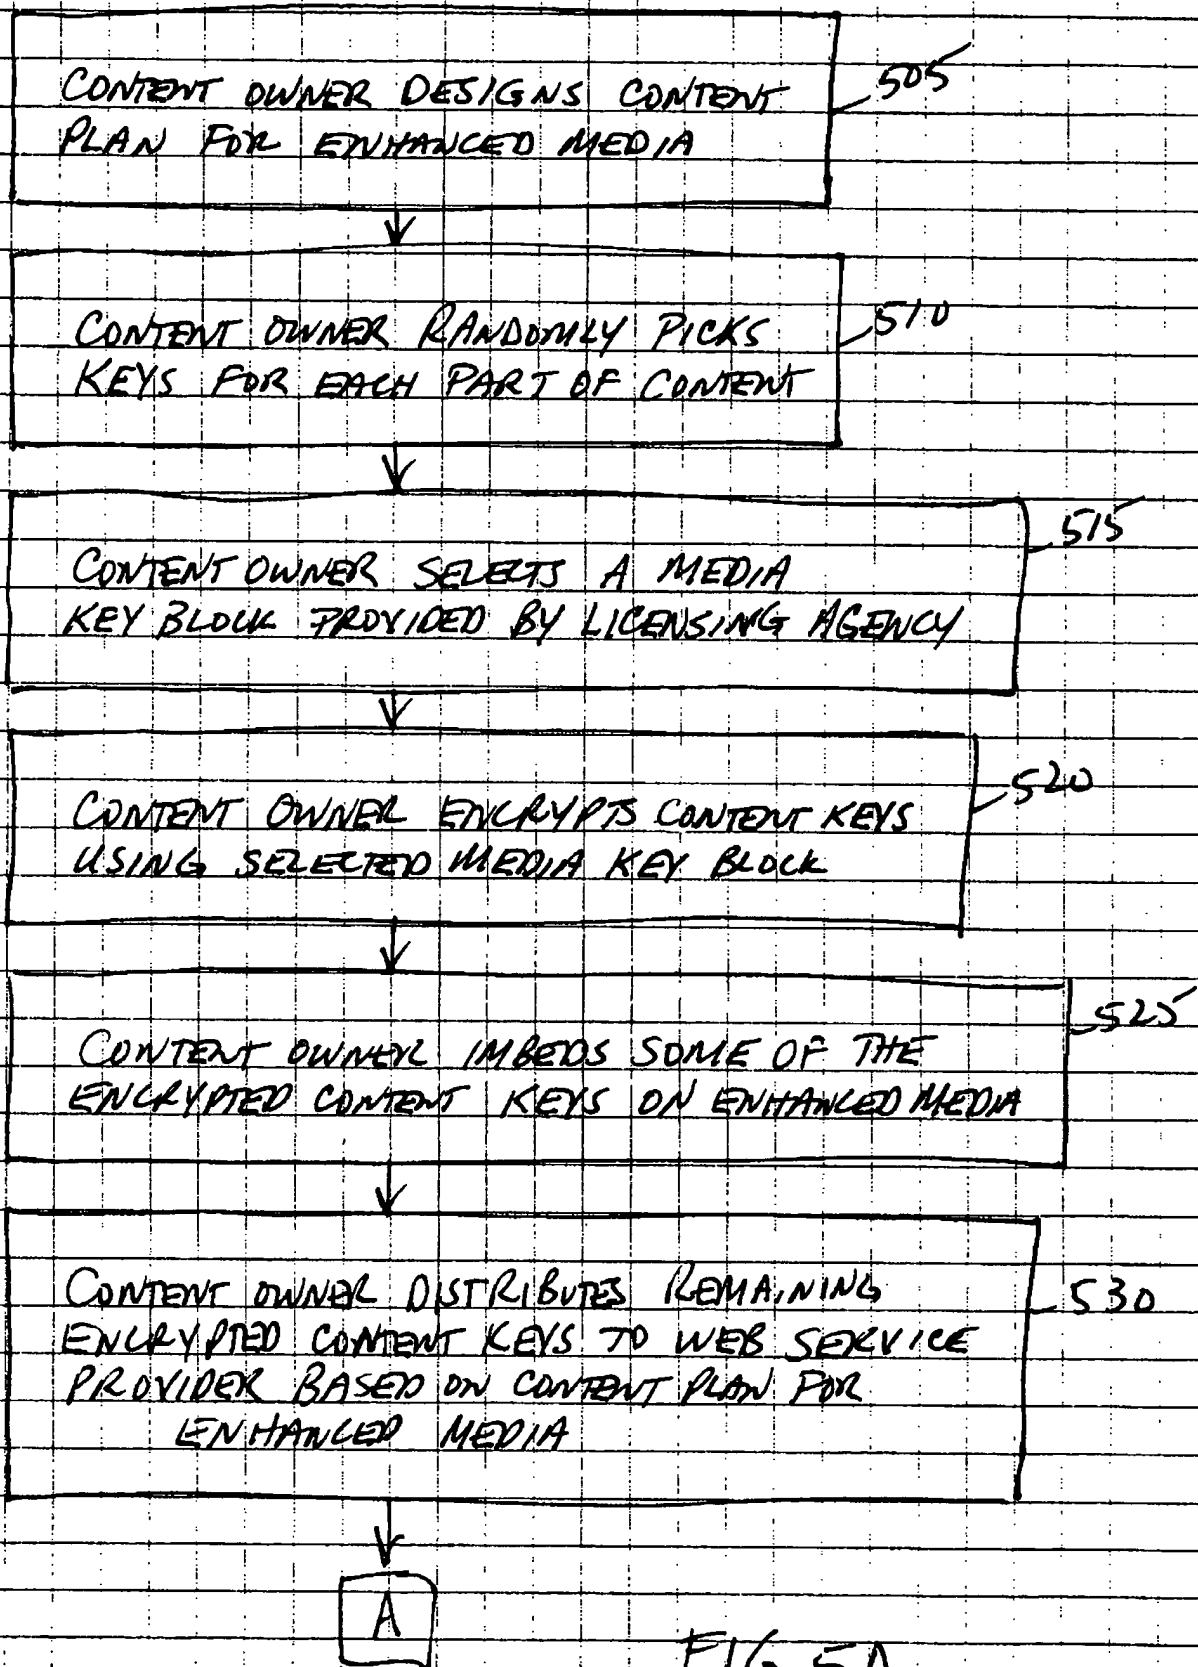 CONTENT OWNER DESIGNS CONTENT
PLAN FOR ENHANCED MEDIA
505
CONTENT OWNER RANDOMLY PICKS
KEYS FOR EACH PART OF CONTENT
510
CONTENT OWNER SELECTS A MEDIA
KEY BLOCK PROVIDED BY LICENSING AGENCY
515
CONTENT OWNER ENCRYPTS CONTENT KEYS
USING SELECTED MEDIA KEY BLOCK
520
CONTENT OWNER IMBEDS SOME OF THE
ENCRYPTED CONTENT KEYS ON ENHANCED MEDIA
525
CONTENT OWNER DISTRIBUTES REMAINING
ENCRYPTED CONTENT KEYS TO WEB SERVICE
PROVIDER BASED ON CONTENT PLAN FOR
ENHANCED MEDIA
530
A
FIG. 5A